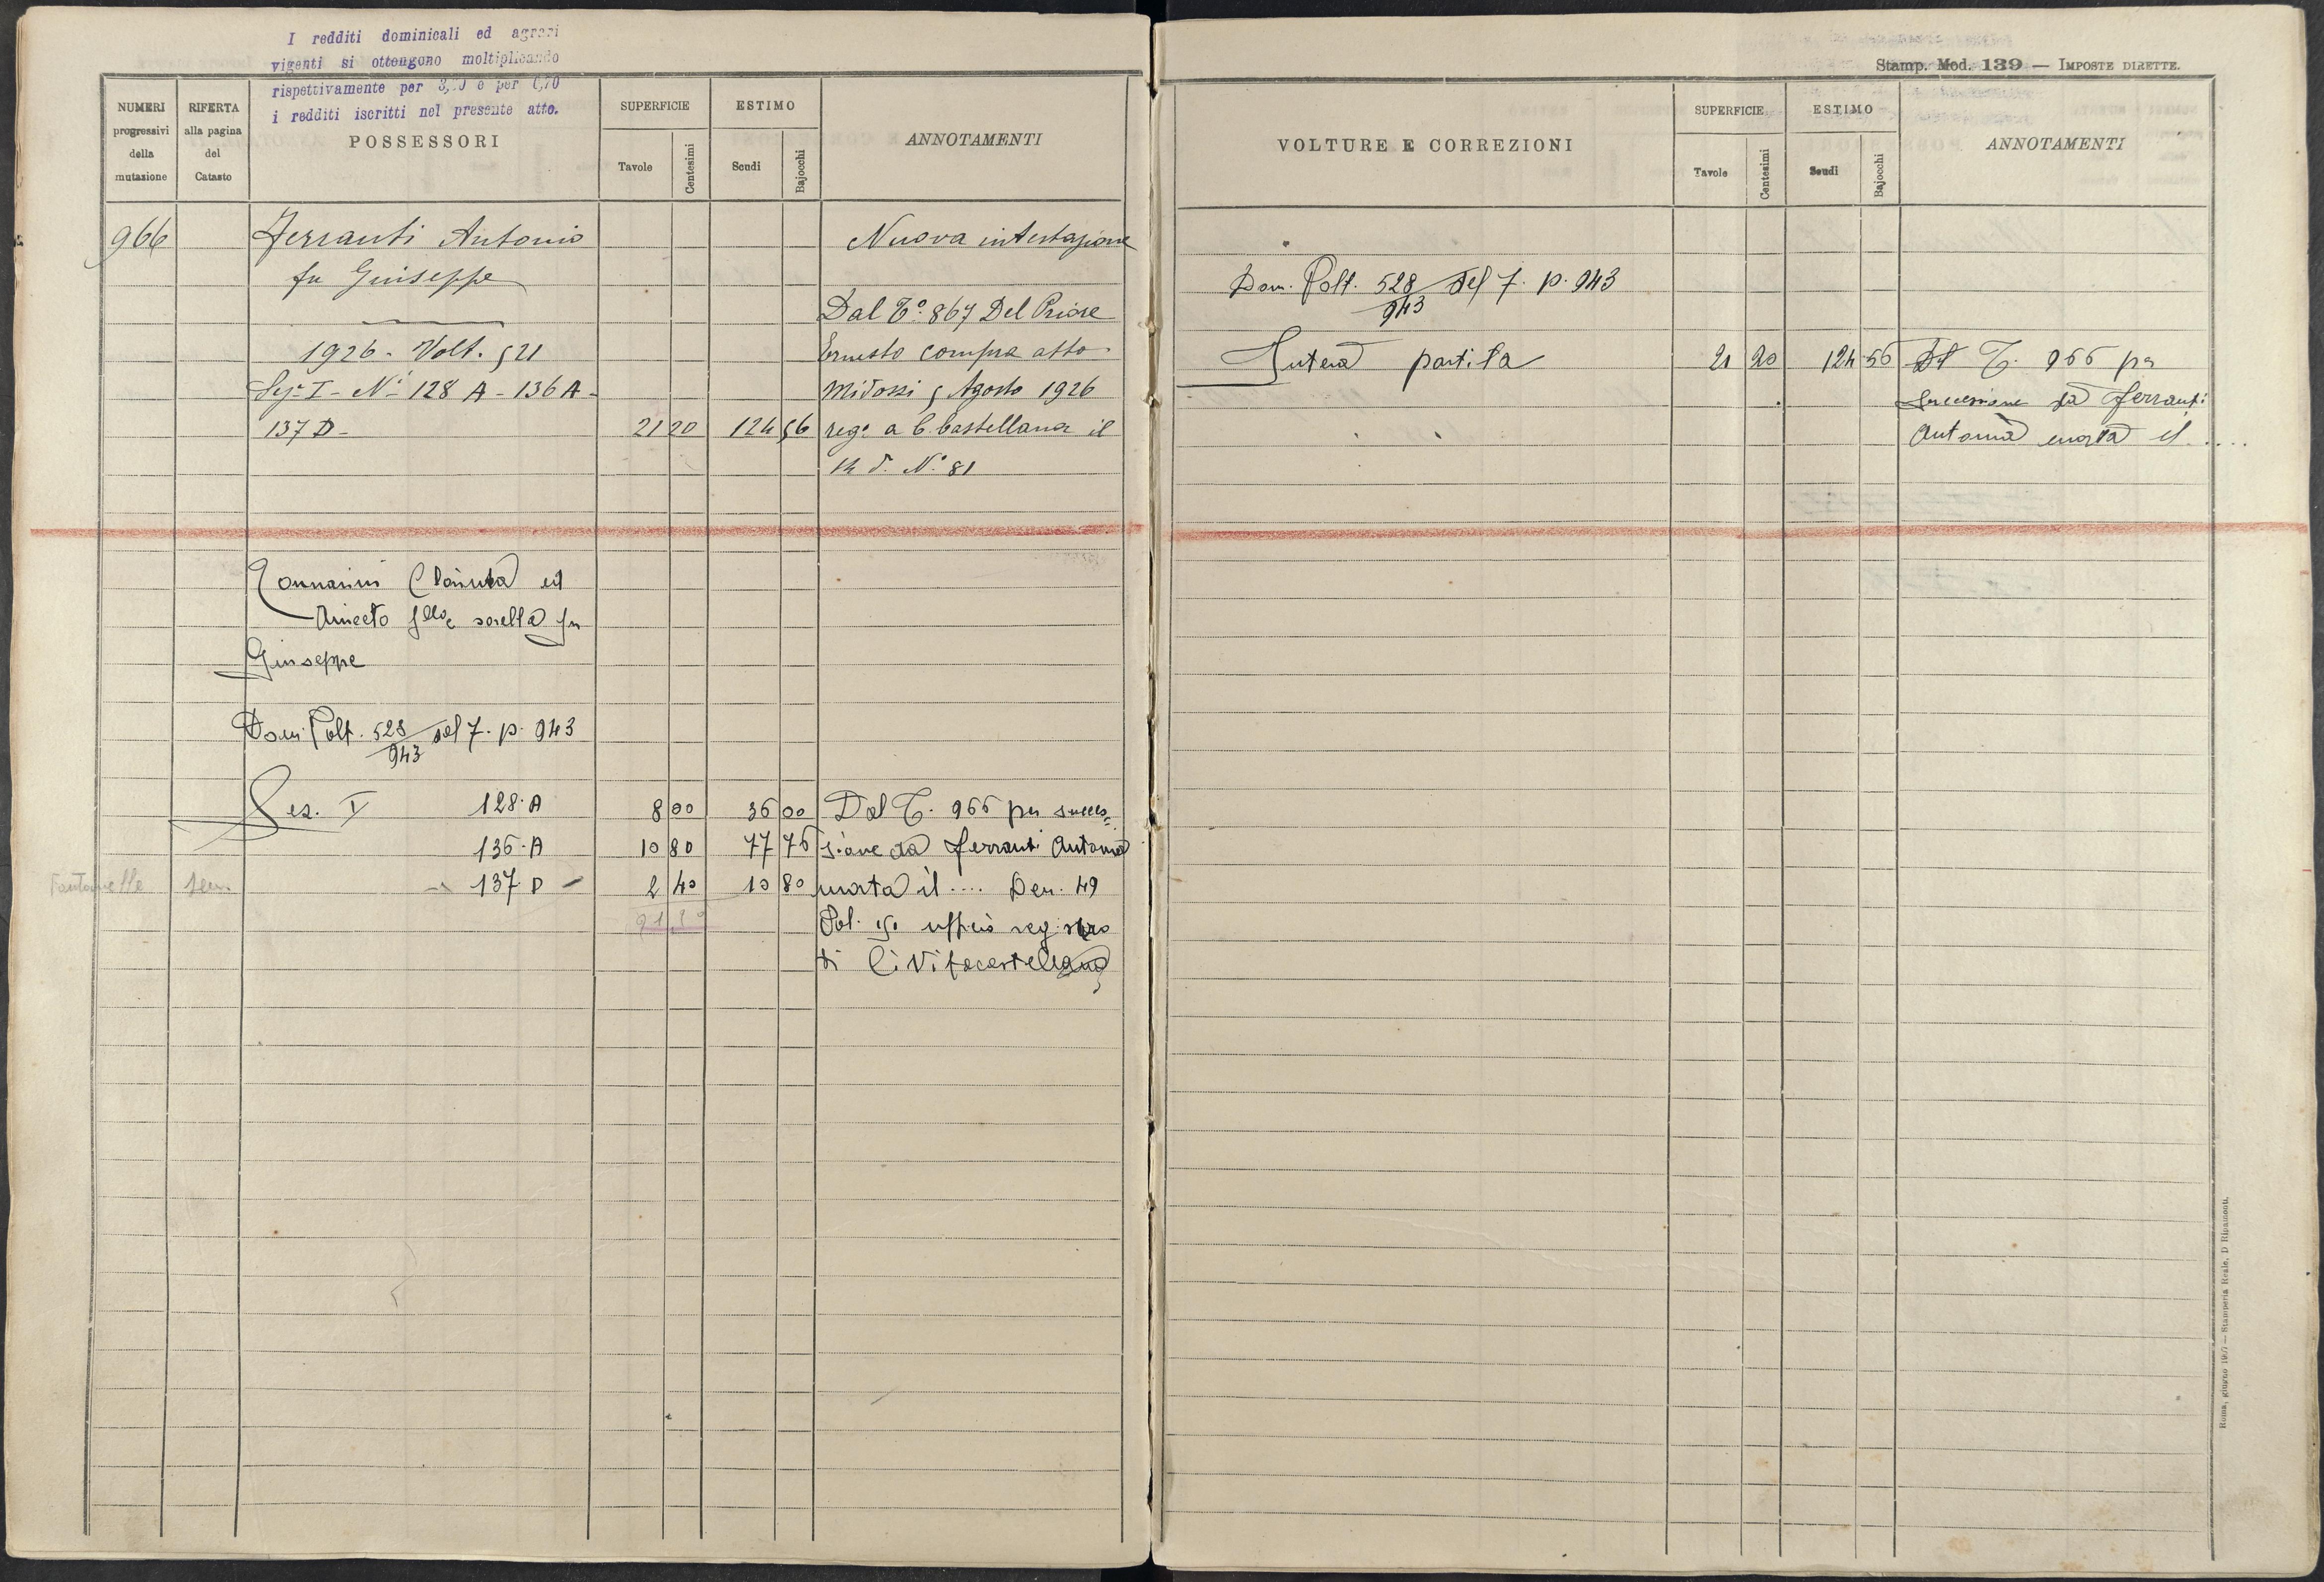 I redditi dominicali ed agrari
vigenti si ottengono moltiplicando
rispettivamente per 3,50 e per 0,70
i redditi iscritti nel presente atto.
NUMERI progressivi della mutazione
RIFERTA alla pagina del Catasto
POSSESSORI
SUPERFICIE
Tavole
Centesimi
ESTIMO
Scudi
Bajocchi
ANNOTAMENTI
966 Ferranti Antonio Nuova intestazione
fu Giuseppe
Dal T.º 867 Del Priore
1926 - Volt. 521 Ernesto compra atto
Sez. I - N.i 128 A - 136 A - Midossi 5 Agosto 1926
137 D - 21 20 124 56 reg.º a C. Castellana il
12 d. N.º 81
Aniceto f.llo e sorella fu
Giuseppe
Dom. Volt. 528/943 del 7. p. 943
Sez. I 128. A 8 00 36 00 Dal T. 966 per succes=
136. A 10 80 77 76 sione da Ferranti Antonia
Fontanelle sem. 137. D 2 40 10 80 morta il .... Den. 49
21,20 Vol. 151 ufficio registro
di Civitacastellana
Stamp. Mod. 139 — IMPOSTE DIRETTE.
VOLTURE E CORREZIONI
SUPERFICIE
Tavole
Centesimi
ESTIMO
Scudi
Bajocchi
ANNOTAMENTI
Dom. Volt. 528/943 del 7. p. 943
Intera partita 21 20 124 56 Al T. 966 per
successione da Ferranti
Antonia morta il ....
Roma, giugno 1907 — Stamperia Reale, D. Ripamonti.